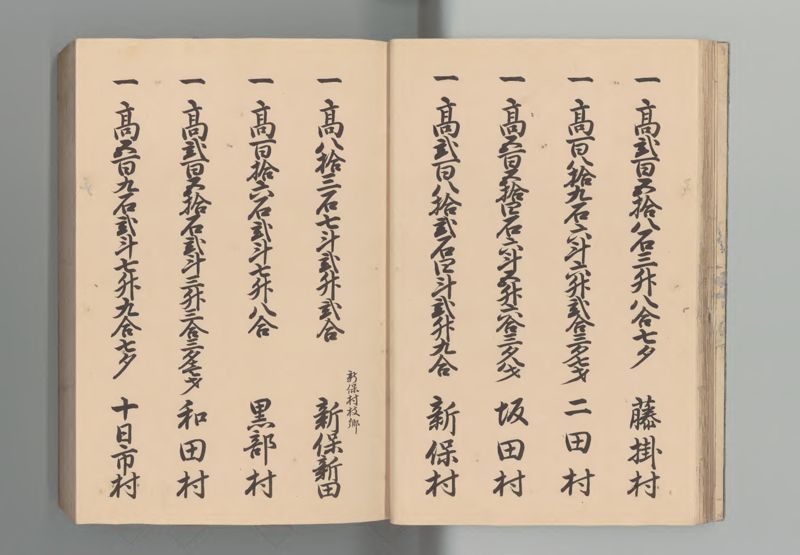 一 高弐百五拾八石三升八合七夕 藤掛村
一 高百八拾九石六斗六升弐合三夕七才 二田村
一 高五百五拾四石六斗五升六合三夕八才 坂田村
一 高弐百八拾弐石四斗弐升九合 新保村
新保村枝郷
一 高八拾三石七斗弐升弐合 新保新田
一 高百拾六石弐斗七升八合 黒部村
一 高弐百五拾石弐斗三升三合三夕七才 和田村
一 高五百九石弐斗七升九合七夕 十日市村